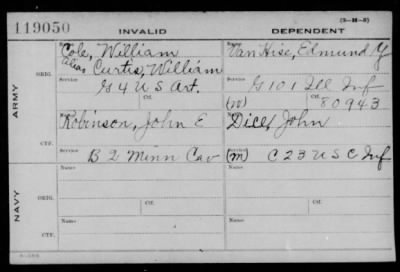 119050
INVALID
DEPENDENT
(3-M-5)
ARMY
ORIG.
Name
Cole, William
alias Curtis, William
Service
G 4 U S Art.
Name
Van Hise, Edmund Y
Service
G 101 Ill Inf
Ctf.
(W) 80943
CTF.
Robinson, John E
Service
B 2 Minn Cav
Dice, John
Service
(M) C 23 U S C Inf
NAVY
ORIG.
Name
Service
Ctf.
Name
Service
Ctf.
CTF.
Name
Name